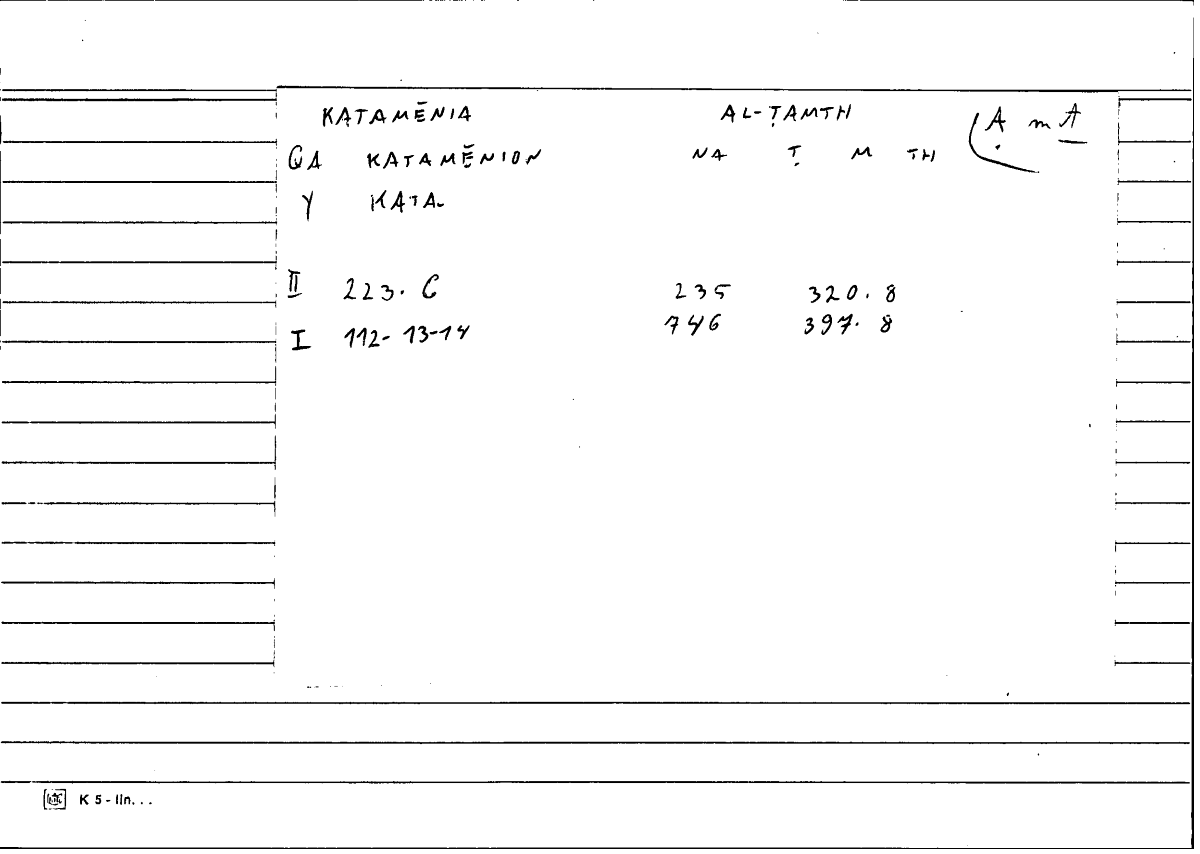 KATAMĒNIA AL-ṬAMTH Ạ m A
QA KATAMĒNION NA Ṭ M TH
Y KATA-
II 223. C 235 320. 8
I 112-13-14 746 397. 8
K 5 - lin. . .